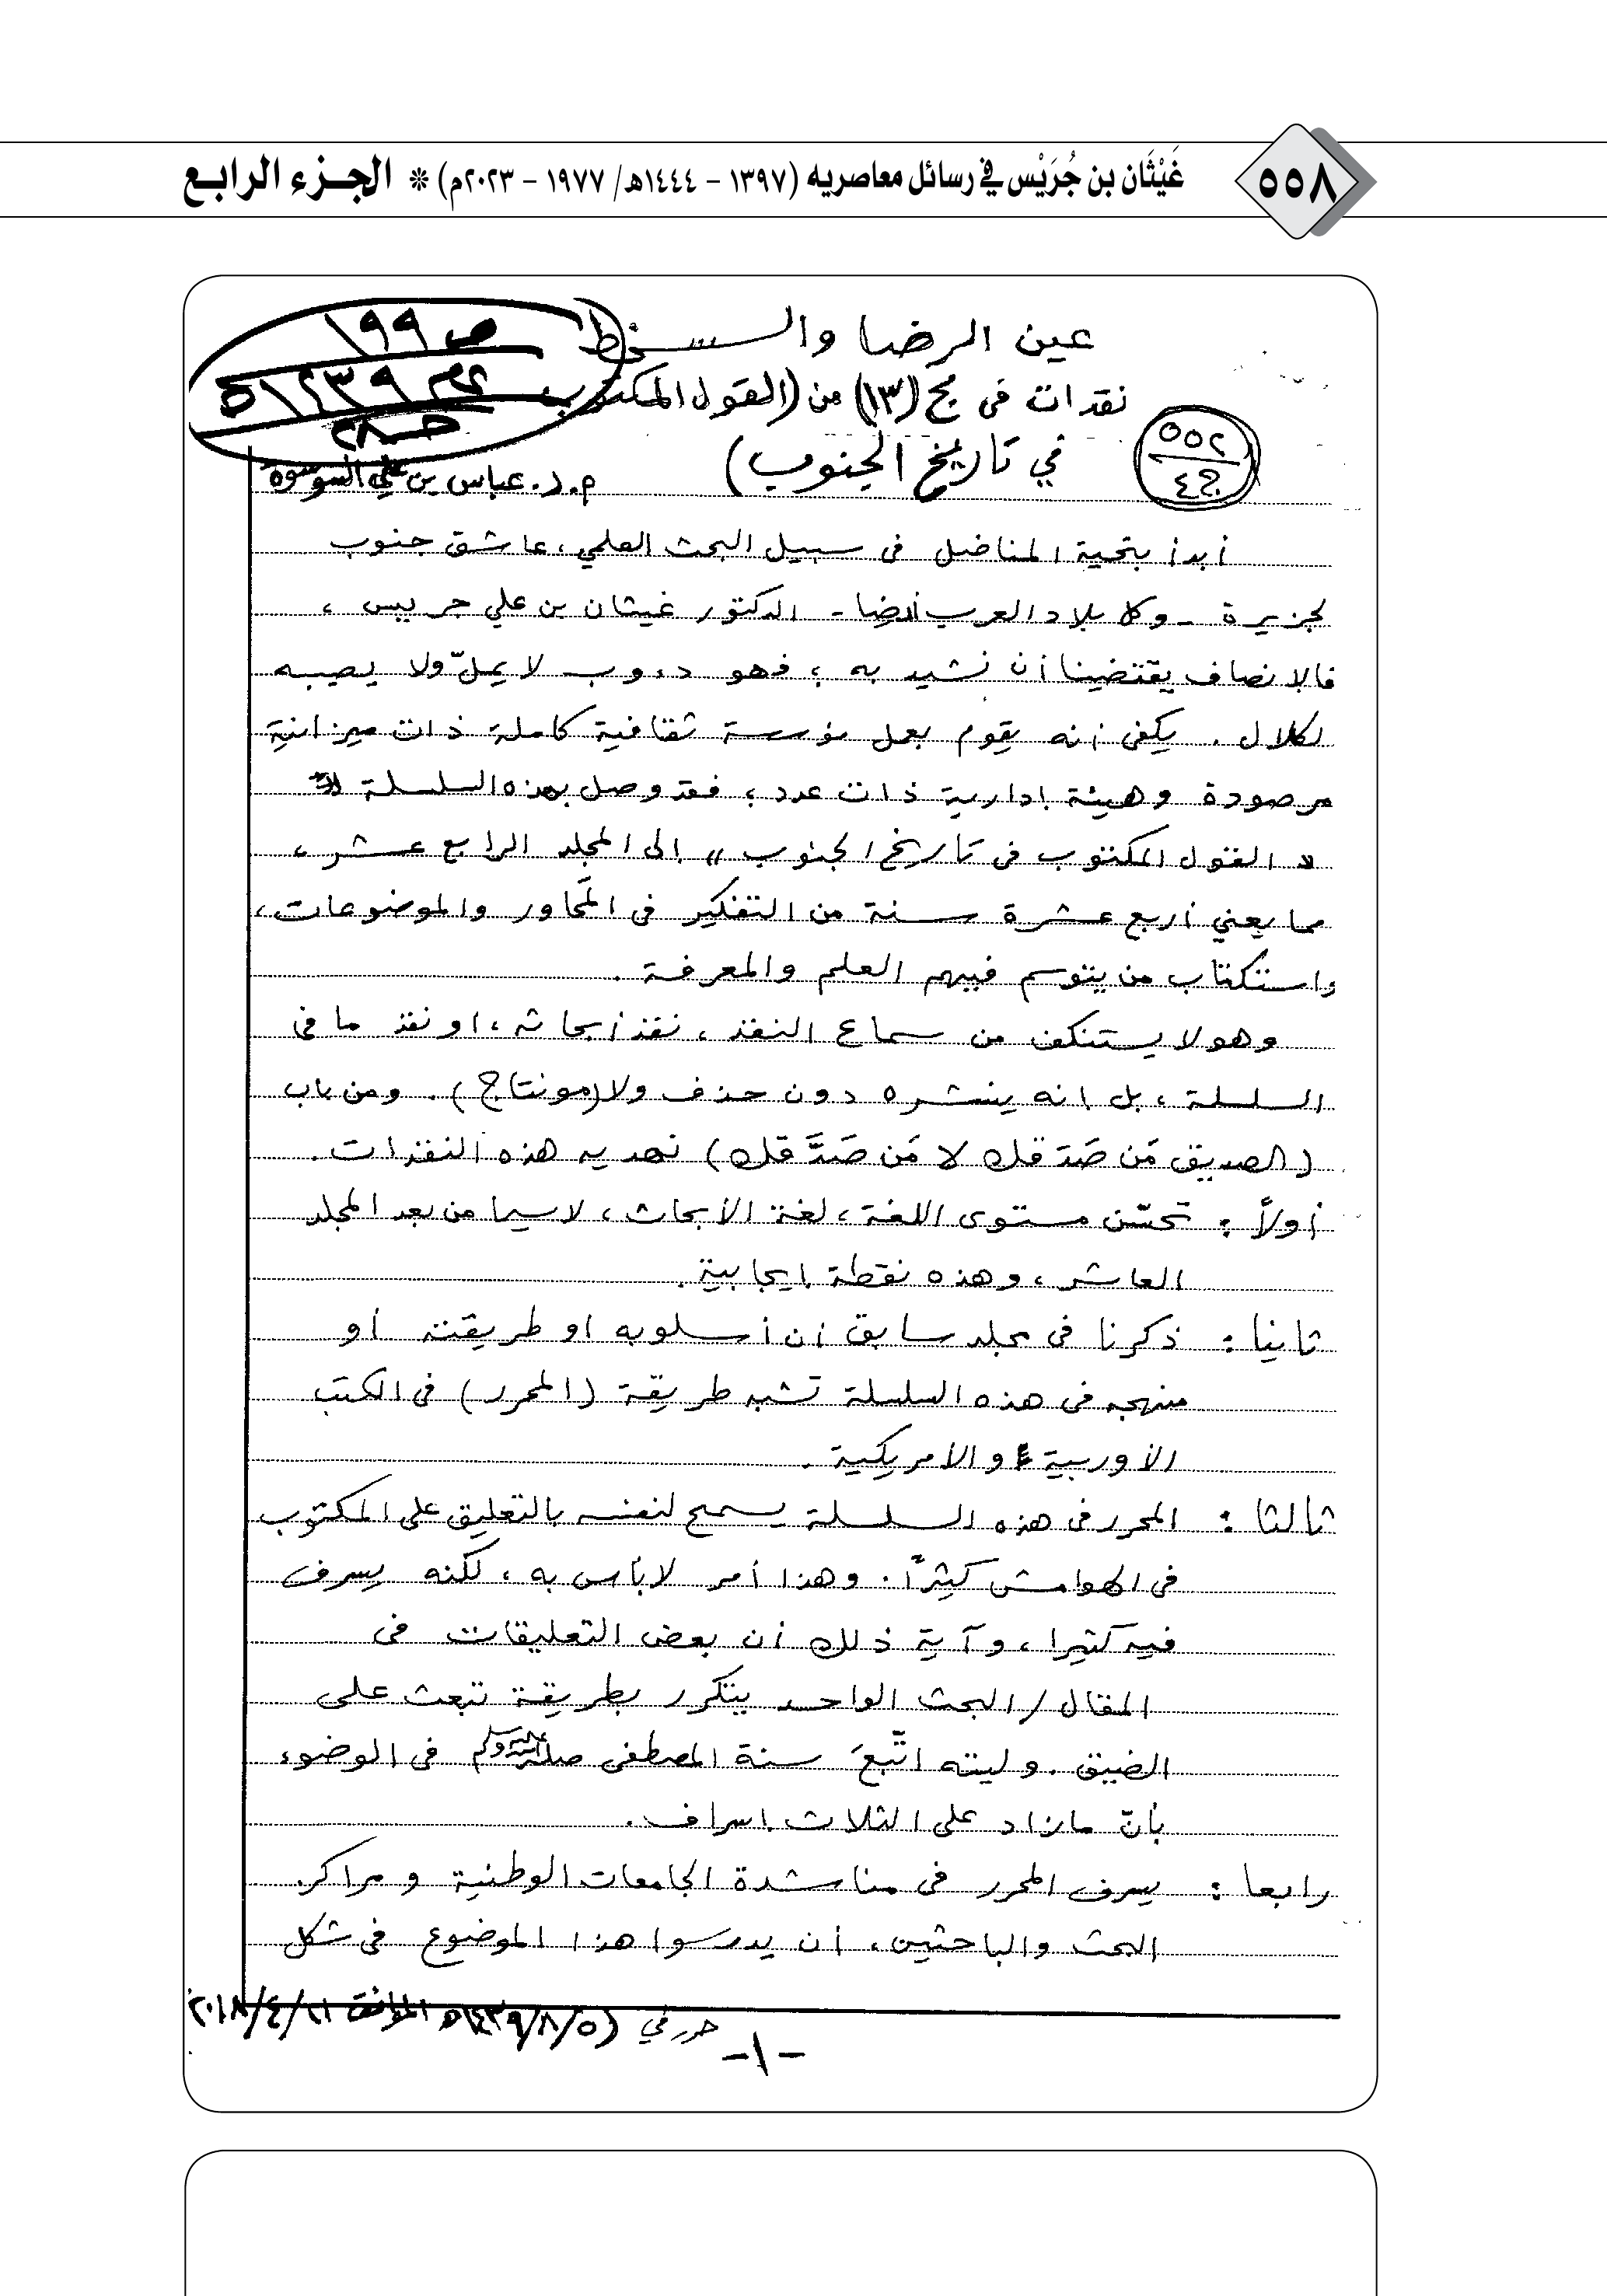 ٥٥٨
غَيْثَان بن جُرَيْس في رسائل معاصريه (١٣٩٧ – ١٤٤٤هـ/ ١٩٧٧ – ٢٠٢٣م) ❊ الجـزء الرابـع
عين الرضا والسخط
نقدات في مج (١٣) من (القول المكتوب
في تاريخ الجنوب)
ص ١٩٩
٥٥٢
ج٤
أ.د. عباس بن علي السوسوة
أبدأ بتحية المناضل في سبيل البحث العلمي، عاشق جنوب
لجزيرة - وكل بلاد العرب أيضا - الدكتور غيثان بن علي جريس ،
فالإنصاف يقتضينا أن نشيد به ؛ فهو دءوب لا يملّ ولا يصيبه
لكلال . يكفي أنه يقوم بعمل مؤسسة ثقافية كاملة ذات ميزانية
مرصودة وهيئة إدارية ذات عدد ؛ فقد وصل بهذه السلسلة
« القول المكتوب في تاريخ الجنوب » إلى المجلد الرابع عشر ،
مما يعني أربع عشرة سنة من التفكير في المحاور والموضوعات،
واستكتاب من يتوسم فيهم العلم والمعرفة .
وهو لا يستنكف من سماع النقد ، نقد أبحاثه ، او نقد ما في
السلسلة ، بل انه ينشره دون حذف ولا (مونتاج) . ومن باب
(الصديق مَن صَدَقك لا مَن صَدَّقك) نهديه هذه النقدات .
أولاً : تحسّن مستوى اللغة ، لغة الأبحاث ، لاسيما من بعد المجلد
العاشر ، وهذه نقطة إيجابية .
ثانيا : ذكرنا في مجلد سابق أن أسلوبه او طريقته أو
منهجه في هذه السلسلة تشبه طريقة (المحرر) في الكتب
الأوربية والأمريكية .
ثالثا : المحرر في هذه السلسلة يسمح لنفسه بالتعليق على المكتوب
في الهوامش كثيرًا . وهذا أمر لا بأس به ، لكنه يسرف
فيه كثيرا ، وآية ذلك أن بعض التعليقات في
المقال / البحث الواحد يتكرر بطريقة تبعث على
الضيق . وليته اتَّبعَ سنة المصطفى صلى الله عليه وسلم في الوضوء
بأنّ ما زاد على الثلاث إسراف .
رابعا : يسرف المحرر في مناشدة الجامعات الوطنية ومراكز
البحث والباحثين ، أن يدرسوا هذا الموضوع في شكل
حرر في (٥/٨/١٤٣٩هـ الموافق ٢١/٤/٢٠١٨
-١-